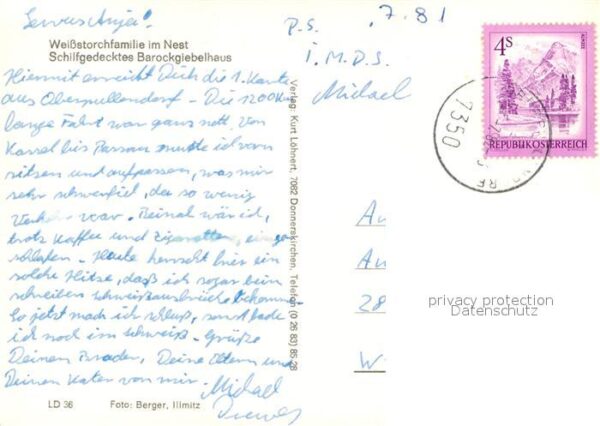 Servus Anja!
Weißstorchfamilie im Nest
Schilfgedecktes Barockgiebelhaus
Hiermit erreicht Dich die 1. Karte
aus Oberpullendorf. Die 1200 Km
lange Fahrt war ganz nett. Von
Kassel bis Passau mußte ich vorn
sitzen und aufpassen, was mir
sehr schwerfiel, da so wenig
Verkehr war. Beinah wär ich,
trotz Kaffee und Zigaretten, einge-
schlafen. Heute herrscht hier ein
solche Hitze, daß ich sogar beim
schreiben schweißausbrüche bekomme.
So jetzt mach ich schluß, sonst bade
ich noch im schweiß. Grüße
Deinen Bruder, Deine Eltern und
Deinen Kater von mir. Michael
LD 36 Foto: Berger, Illmitz
Verlag: Kurt Löhnert, 7082 Donnerskirchen, Telefon (0 26 83) 85 28
P.S. 7.81
I.M.D.S.
Michael
4S
REPUBLIK ÖSTERREICH
7350
28
W
privacy protection
Datenschutz